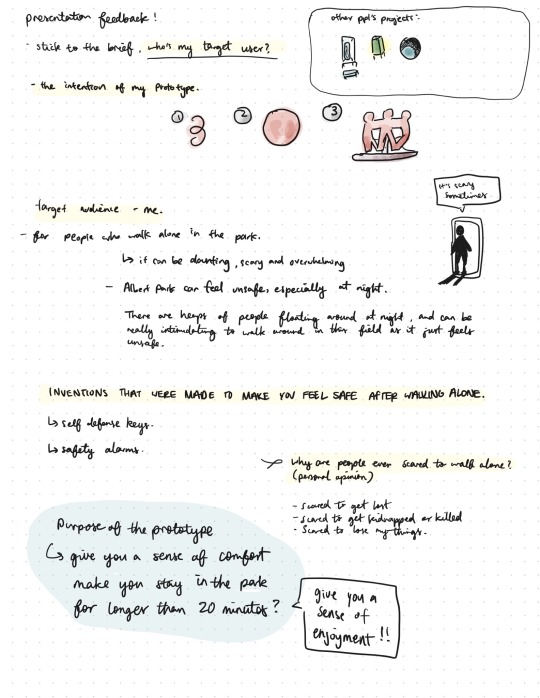 presentation feedback!
- stick to the brief. who's my target user?
- the intention of my prototype.
other ppl's projects:
1
2
3
target audience - me.
- for people who walk alone in the park.
↳ it can be daunting, scary and overwhelming
- Albert Park can feel unsafe, especially at night.
There are heaps of people floating around at night, and can be
really intimidating to walk around in this field as it just feels
unsafe.
it's scary
sometimes.
INVENTIONS THAT WERE MADE TO MAKE YOU FEEL SAFE AFTER WALKING ALONE.
↳ self defense keys.
↳ safety alarms.
why are people even scared to walk alone?
(personal opinion)
- scared to get lost
- scared to get kidnapped or killed
- scared to lose my things.
Purpose of the prototype
↳ give you a sense of comfort
make you stay in the park
for longer than 20 minutes?
give you a
sense of
enjoyment!!